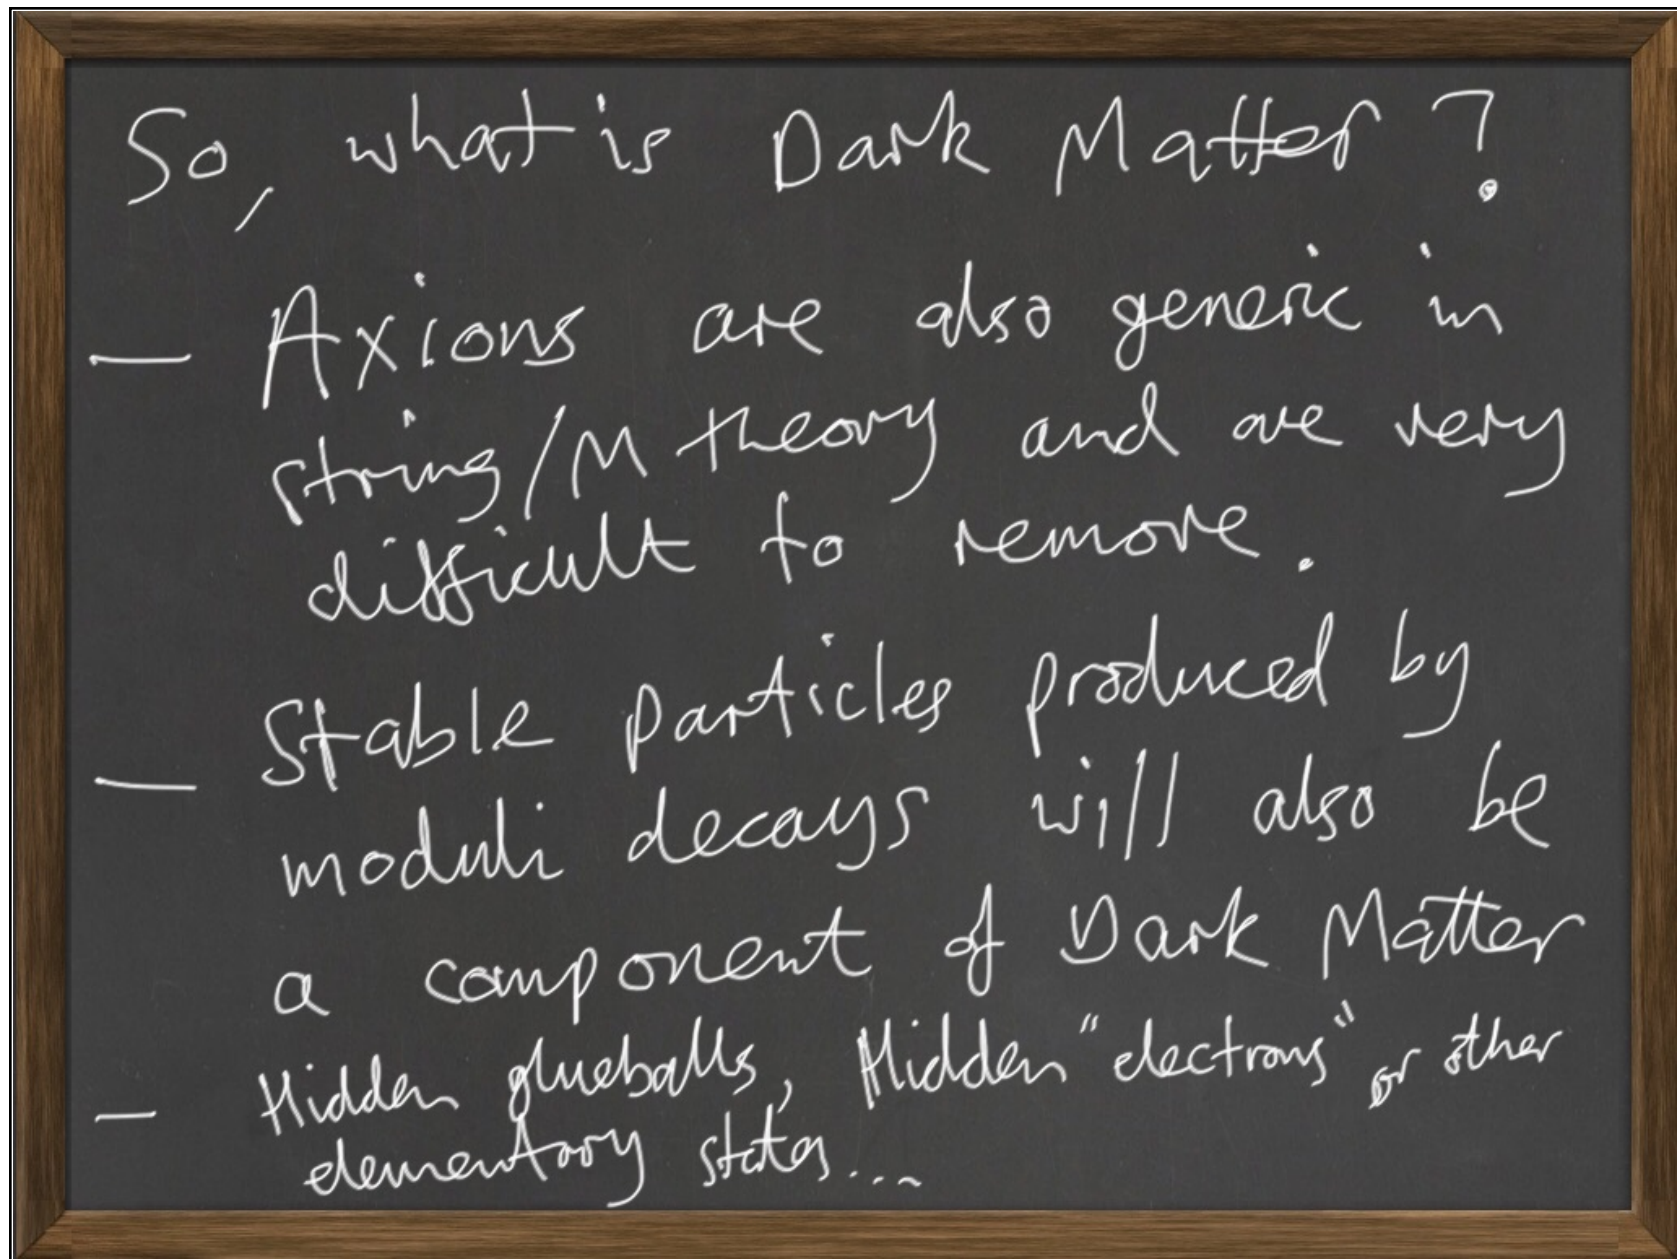 So, what is Dark Matter?
— Axions are also generic in
string/M theory and are very
difficult to remove.
— Stable particles produced by
moduli decays will also be
a component of Dark Matter
— Hidden glueballs, Hidden "electrons" or other
elementary states...